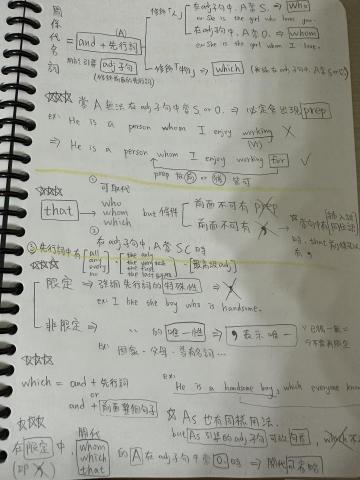 關係代名詞 = and + 先行詞 (A)
引導 adj子句
(修飾前面的先行詞)
修飾「人」
在adj子句中, A當S. ⇒ who
ex: She is the girl who loves you.
在adj子句中, A當O. ⇒ whom
ex: She is the girl whom I love.
修飾「物」⇒ which (無論在adj子句中, A當S or O)
☆☆☆ 當A無法在adj子句中當S. or O. ⇒ 必定會出現 prep
ex: He is a person whom I enjoy working X
(Vi)
⇒ He is a person whom I enjoy working for ✓
prep 放前 or 後 皆可
☆☆☆
that
① 可取代
who
whom
which
but 條件
前面不可有 prep
前面不可有 ,
☆ 當句中有插入語
時, that前
有 ,
② 在adj子句中, A當SC時
③ 先行詞中有
all
any
every
no
the only
the very
the last
最高級adj
☆☆☆
限定 ⇒ 強調先行詞的特殊性 ⇒ ,
ex: I like the boy who is handsome.
非限定 ⇒ 〃 的唯一性 ⇒ , 表示唯一
ex: 國家、父母、專有名詞...
☆☆☆
which = and + 先行詞
or
and + 前面整個句子
ex: He is a handsome boy, which everyone know
☆☆☆
在限定中,
(即 ,)
關代
whom
which
that
的 A 在adj子句中當 O. 時 ⇒ 關代可省略
☆ As 也有同樣用法.
but As 引導的adj子句可放句首, which不